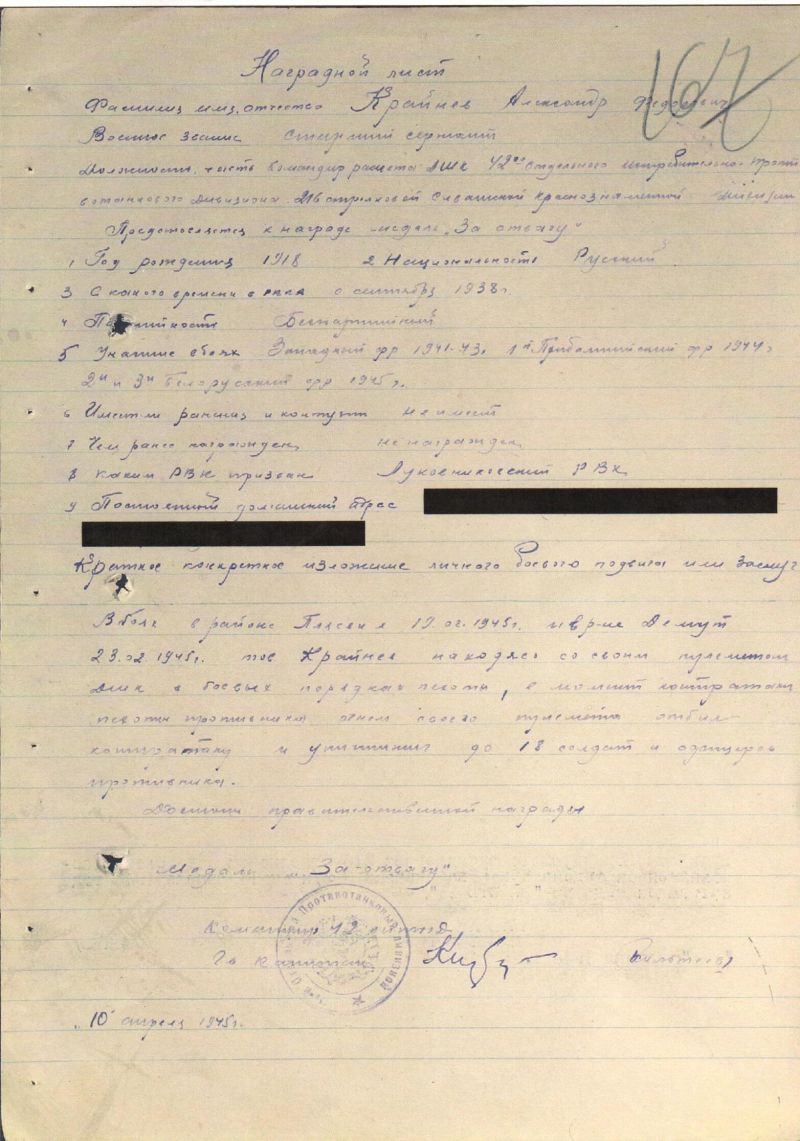 167
Наградной лист
Фамилия имя, отчество Крайнев Александр Федорович
Военное звание Старший сержант
Должность, часть командир расчета ДШК 42го отдельного истребительно-проти
вотанкового дивизиона 216 стрелковой Сивашской краснознаменной дивизии
Представляется к награде медаль „За отвагу"
1 Год рождения 1918 2 Национальность Русский
3 С какого времени в РККА с сентября 1938г.
4 Партийность Беспартийный
5 Участие в боях Западный фр 1941-43г 1й Прибалтийский фр 1944г
2й и 3й Белорусский фр 1945г.
6 Имеет ли ранения и контузии не имеет
7 Чем ранее награжден не награжден
8 каким РВК призван РВК
9 Постоянный домашний адрес
Краткое конкретное изложение личного боевого подвига или заслуг
В боях в районе 19.02.1945г. и в р-не Демут
23.02.1945г. тов Крайнев находясь со своим пулеметом
ДШК в боевых порядках пехоты, в момент контратаки
пехоты противника огнем своего пулемета отбил
контратаку и уничтожил до 18 солдат и офицеров
противника.
Достоин правительственной награды
Медаль „За отвагу"
Командир 42
Гв капитан
„10" апреля 1945г.